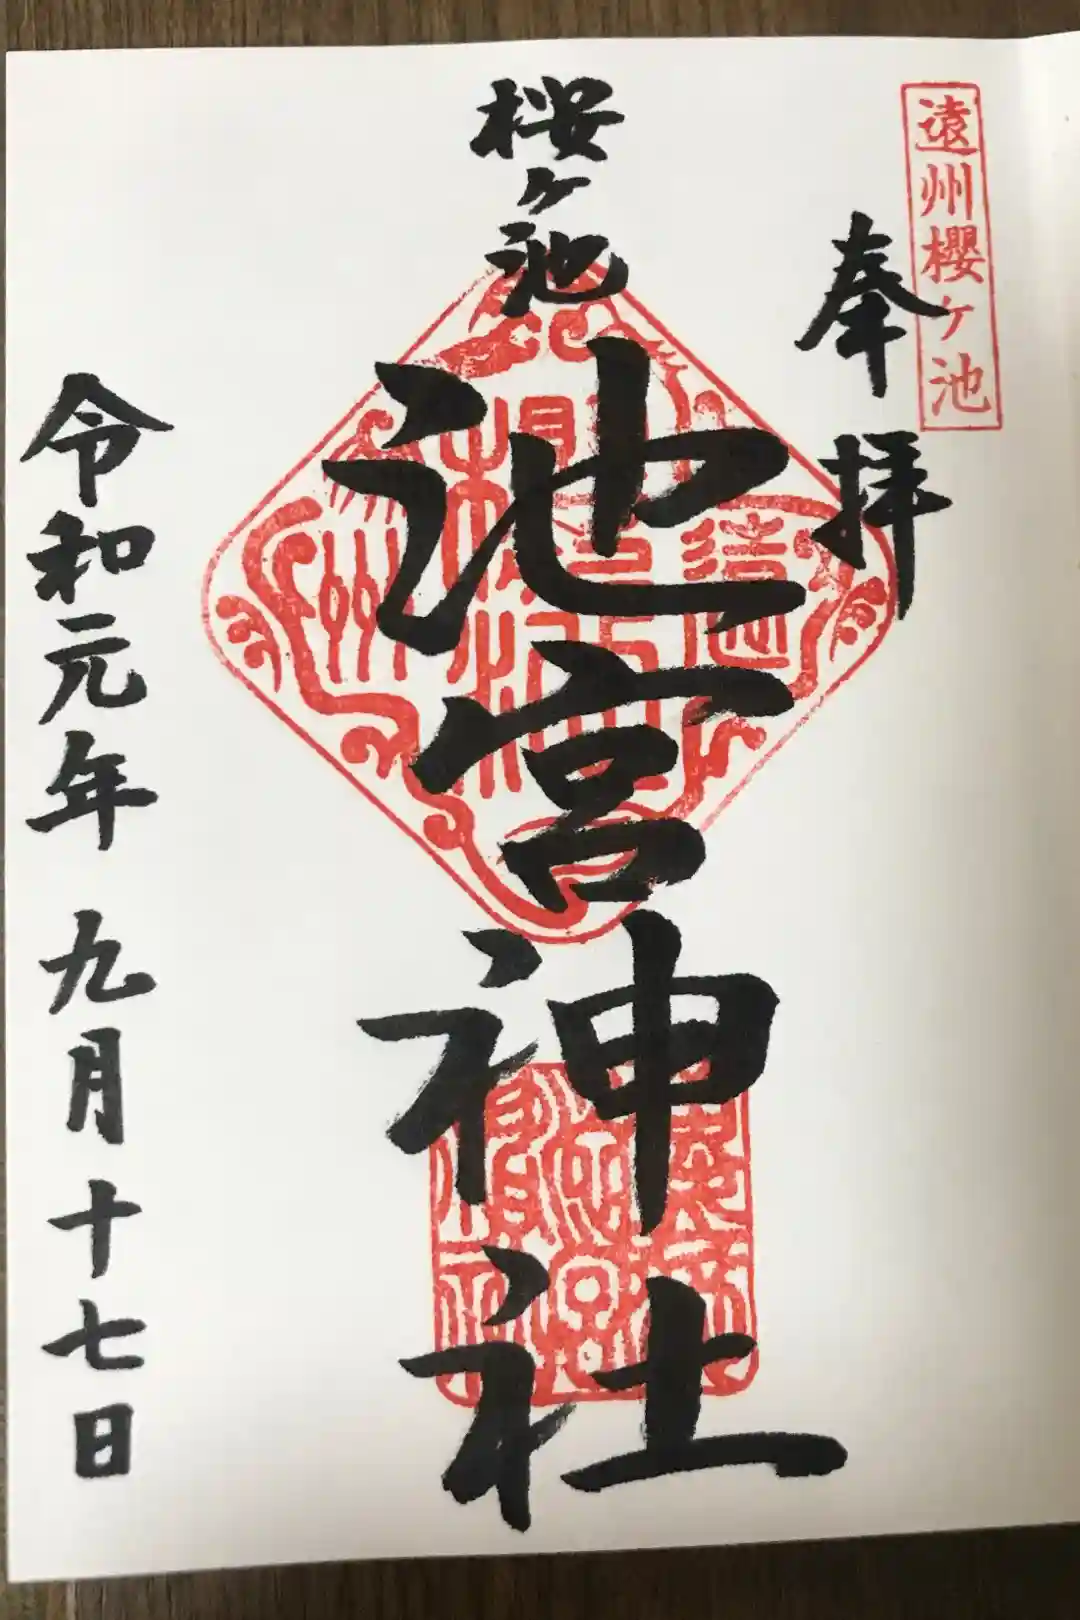 遠州櫻ヶ池
奉拝
桜ヶ池
池宮神社
令和元年九月十七日